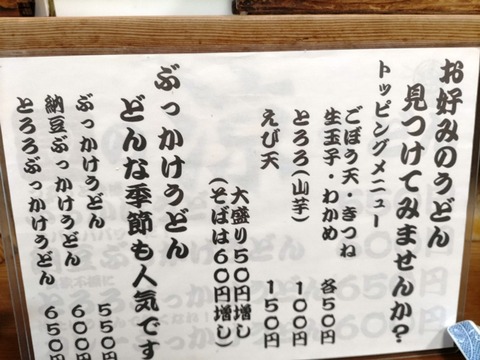 お好みのうどん
見つけてみませんか?
トッピングメニュー
ごぼう天・きつね
生玉子・わかめ 各50円
とろろ(山芋) 100円
えび天 150円
大盛り50円増し
(そばは60円増し)
ぶっかけうどん
どんな季節も人気です
ぶっかけうどん 550円
納豆ぶっかけうどん 650円
とろろぶっかけうどん 650円